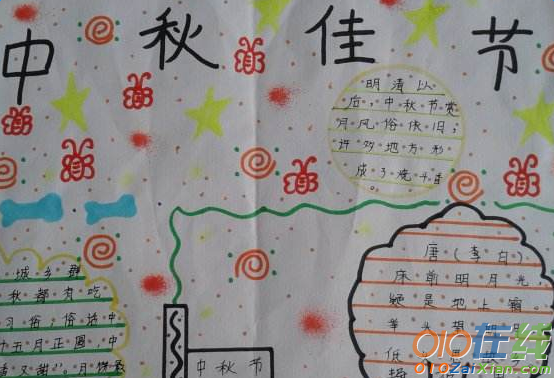 中秋佳节
明清以
后，中秋节赏
月风俗依旧；
许多地方形
成了烧斗香
。
唐（李白）
床前明月光，
疑是地上霜
城乡群
秋都有吃
习俗，俗话中
十五月正圆，中
中秋节
010在线
010ZaiXian.com